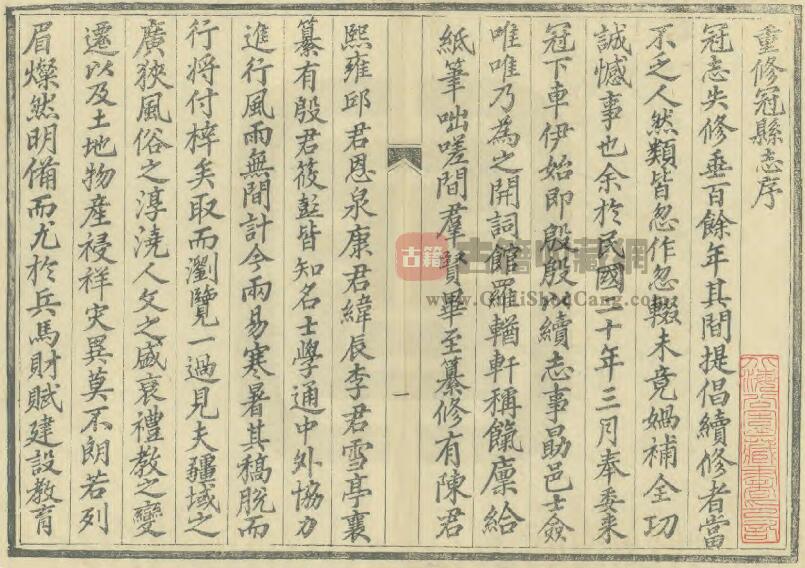 重修冠縣志序
冠志失修垂百餘年其間提倡續修者當
不乏人然類皆忽作忽輟未竟媧補全功
誠憾事也余於民國二十年三月奉委來
冠下車伊始即殷殷以續志事勗邑士僉
唯唯乃為之開詞館羅輶軒稱餼廩給
紙筆咄嗟間羣賢畢至纂修有陳君
一
熙雍邱君恩泉康君緯辰李君雪亭襄
纂有殷君筱彭皆知名士學通中外協力
進行風雨無間計今兩易寒暑其稿脫而
行將付梓矣取而瀏覽一過見夫疆域之
廣狹風俗之淳澆人文之盛衰禮教之變
遷以及土地物產祲祥灾異莫不朗若列
眉燦然明備而尤於兵馬財賦建設教育
古籍
www.GuJiShouCang.com